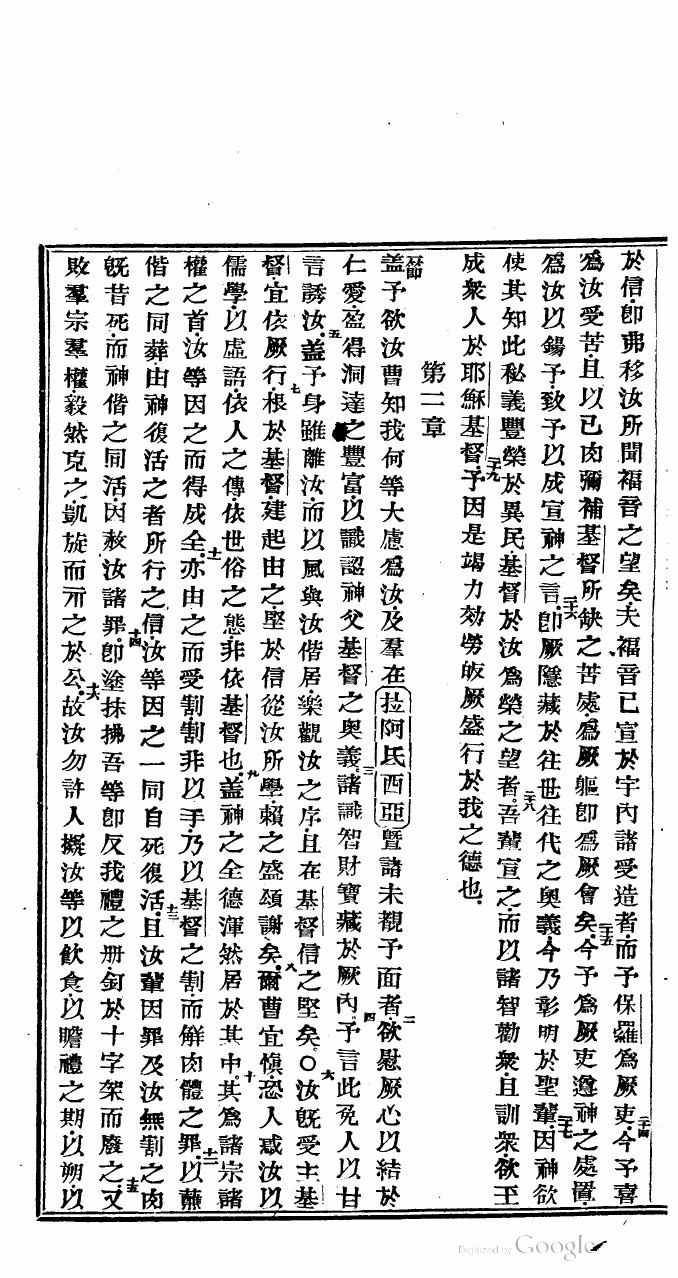 於信卽弗移汝所聞福音之望矣夫福音已宣於宇內諸受造者而予保羅爲厥吏二十四今予喜
爲汝受苦且以己肉彌補基督所缺之苦處爲厥軀卽爲厥會矣二十五今予爲厥吏遵神之處置
爲汝以錫予致予以成宣神之言二十六卽厥隱藏於往世往代之奧義今乃彰明於聖輩二十七因神欲
使其知此秘義豐榮於異民基督於汝爲榮之望者二十八吾輩宣之而以諸智勸衆且訓衆欲王
成衆人於耶穌基督二十九予因是竭力効勞依厥盛行於我之德也
第二章
一節蓋予欲汝曹知我何等大慮爲汝及羣在拉阿氐西亞曁諸未覩予面者二欲慰厥心以結於
仁愛盈得洞達之豐富以識認神父基督之奧義三諸識智財寶藏於厥內四予言此免人以甘
言誘汝五蓋予身雖離汝而以風與汝偕居樂觀汝之序且在基督信之堅矣〇六汝旣受主基
督宜依厥行七根於基督建起由之堅於信從汝所學賴之盛頌謝矣八爾曹宜愼恐人惑汝以
儒學以虛語依人之傳依世俗之態非依基督也九蓋神之全德渾然居於其中十其爲諸宗諸
權之首汝等因之而得成全十一亦由之而受割割非以手乃以基督之割而觧肉體之罪十二以蘸
偕之同葬由神復活之者所行之信汝等因之一同自死復活十三且汝輩因罪及汝無割之肉
旣昔死而神偕之同活因赦汝諸罪十四卽塗抹拂吾等卽反我禮之册釘於十字架而廢之十五又
敗羣宗羣權毅然克之凱旋而示之於公十六故汝勿許人擬汝等以飮食以瞻禮之期以朔以
Digitized by Google